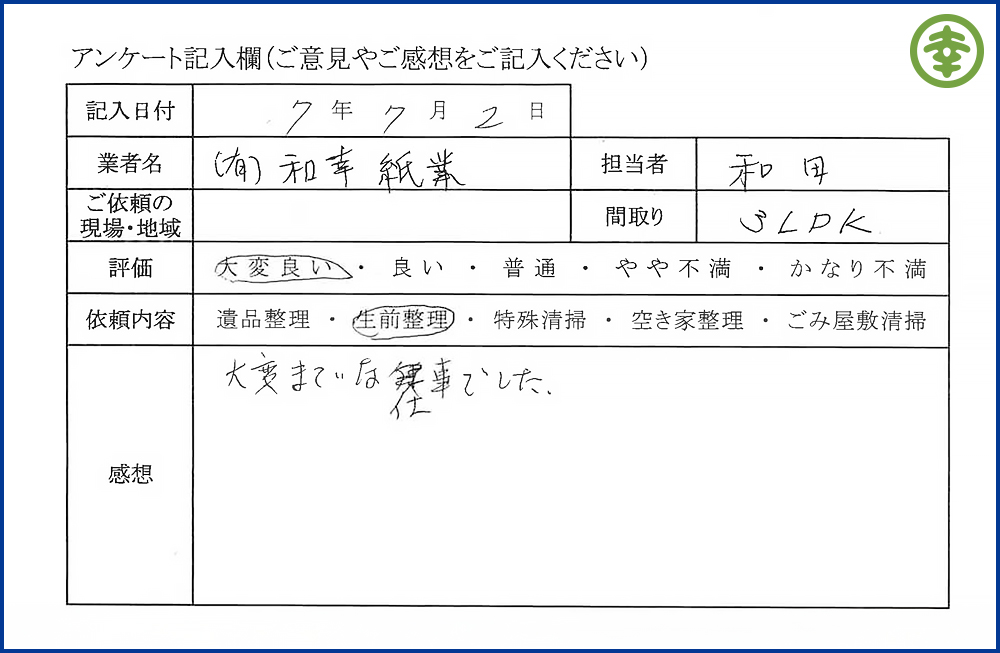 幸
アンケート記入欄(ご意見やご感想をご記入ください)
記入日付 7年 7月 2日
業者名 (有)和幸紙業 担当者 和田
ご依頼の
現場・地域 間取り 3LDK
評価 大変良い・良い・普通・やや不満・かなり不満
依頼内容 遺品整理・生前整理・特殊清掃・空き家整理・ごみ屋敷清掃
感想 大変まていな仕事でした.